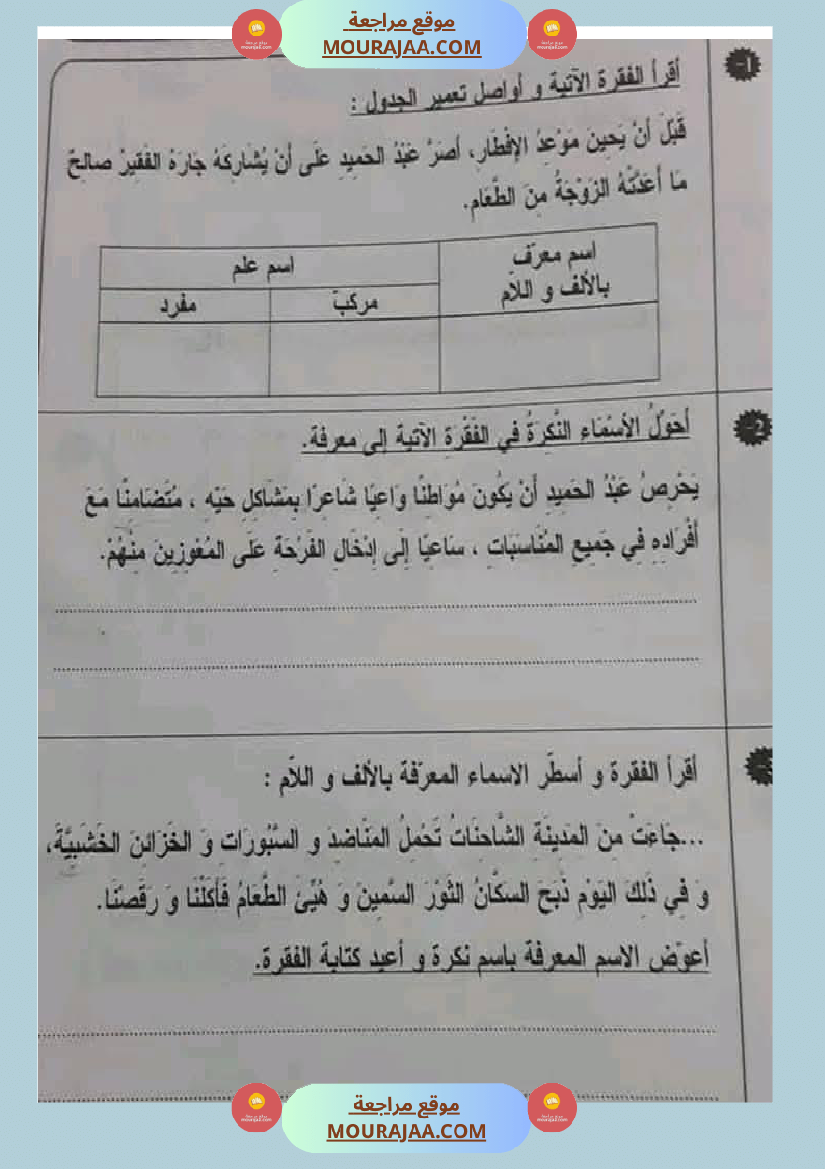 موقع مراجعة
MOURAJAA.COM
1-
أقرأ الفقرة الآتية و أواصل تعمير الجدول :
قَبْلَ أَنْ يَحِينَ مَوْعِدُ الإِفْطَارِ، أَصَرَّ عَبْدُ الحَمِيدِ عَلَى أَنْ يُشَارِكَهُ جَارَهُ الفَقِيرُ صالِحٌ
مَا أَعَدَّتْهُ الزَّوْجَةُ مِنَ الطَّعَامِ.
اسم معرّف بالألف و اللاّم
اسم علم
مركبّ
مفرد
2-
أُحَوِّلُ الأَسْمَاءِ النَّكِرَةُ في الفَقْرَةِ الآتية إلى معرفة.
يَحْرِصُ عَبْدُ الحَمِيدِ أَنْ يَكُونَ مُوَاطِنًا وَاعِيًا شَاعِرًا بِمَشَاكِلِ حَيِّهِ ، مُتَضَامِنًا مَعَ
أَفْرَادِهِ فِي جَمِيعِ المُنَاسَبَاتِ ، سَاعِيًا إِلَى إِدْخَالِ الفَرْحَةِ عَلَى المُعْوِزِينَ مِنْهُمْ.
أقرأ الفقرة و أسطّر الاسماء المعرّفة بالألف و اللاّم :
...جَاءَتْ مِنَ المَدِينَةِ الشَّاحِنَاتُ تَحْمِلُ المَنَاضِدَ و السَّبُّورَاتِ وَ الخَزَائِنَ الخَشَبِيَّةَ،
وَ فِي ذَلِكَ اليَوْمِ ذَبَحَ السكَّانُ الثَّوْرَ السَّمِينَ وَ هُيِّئَ الطَّعَامُ فَأَكَلْنَا وَ رَقَصْنَا.
أعوّض الاسم المعرفة باسم نكرة و أعيد كتابة الفقرة.
موقع مراجعة
MOURAJAA.COM